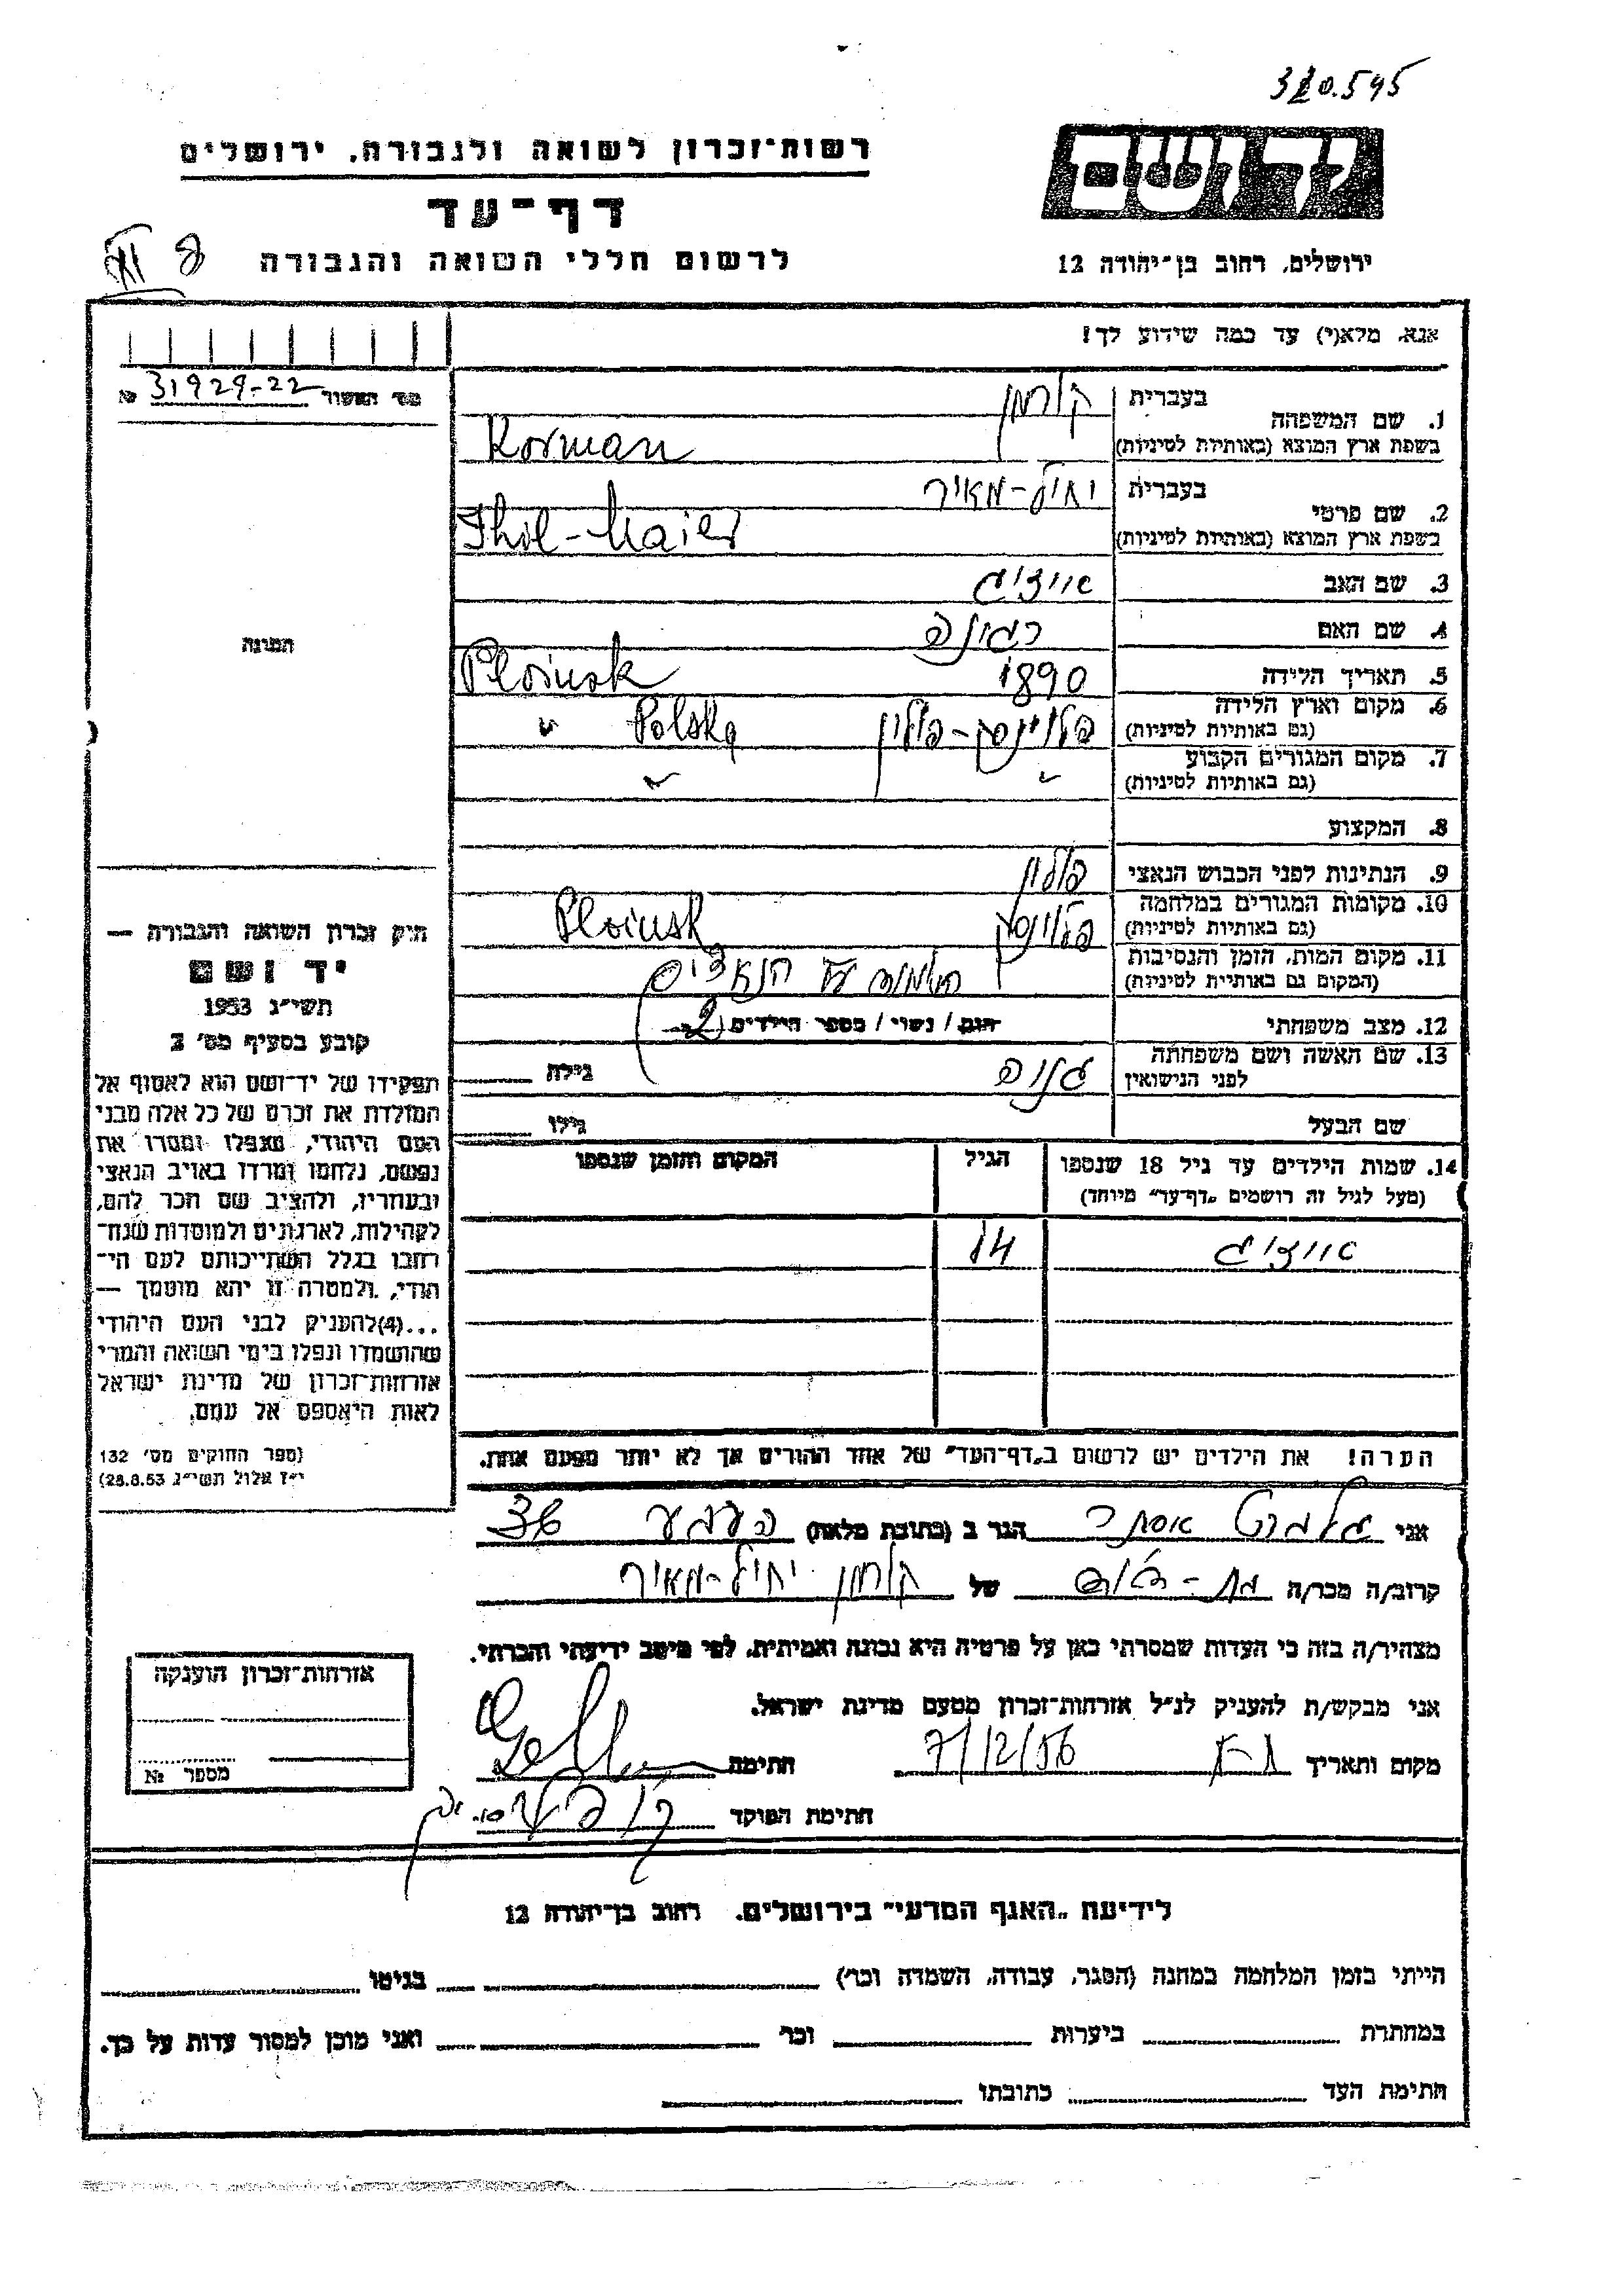 רשות־זכרון לשואה ולגבורה, ירושלים
דף־עד
לרשום חללי השואה והגבורה
יד ושם
ירושלים, רחוב בן־יהודה 12
אנא, מלא(י) עד כמה שידוע לך!
מס׳ האשור № 31929-22
1. שם המשפחה
בעברית קורמן
בשפת ארץ המוצא (באותיות לטיניות) Korman
2. שם פרטי
בעברית יחיל-מאיר
בשפת ארץ המוצא (באותיות לטיניות) Ihil-Maier
3. שם האב אייזיג
4. שם האם
5. תאריך הלידה 1890
Plońsk
6. מקום וארץ הלידה
(גם באותיות לטיניות) פלוינסק-פולין Polska "
7. מקום המגורים הקבוע
(גם באותיות לטיניות) " "
8. המקצוע
9. הנתינות לפני הכבוש הנאצי פולין
10. מקומות המגורים במלחמה
(גם באותיות לטיניות) פלוינסק Ploiusk
11. מקום המות, הזמן והנסיבות
(המקום גם באותיות לטיניות) הנאצים
12. מצב משפחתי רווק / נשוי / מספר הילדים 2
13. שם האשה ושם משפחתה
לפני הנישואין גילה
שם הבעל גילו
14. שמות הילדים עד גיל 18 שנספו
(מעל לגיל זה רושמים „דף־עד״ מיוחד)
הגיל
המקום והזמן שנספו
אייזיג 14
הערה! את הילדים יש לרשום ב„דף־העד״ של אחד ההורים אך לא יותר מפעם אחת.
התמונה
חוק זכרון השואה והגבורה —
יד ושם
תשי״ג 1953
קובע בסעיף מס׳ 2
תפקידו של יד־ושם הוא לאסוף אל
המולדת את זכרם של כל אלה מבני
העם היהודי, שנפלו ומסרו את
נפשם, נלחמו ומרדו באויב הנאצי
ובעוזריו, ולהציב שם וזכר להם,
לקהילות, לארגונים ולמוסדות שנח־
רבו בגלל השתייכותם לעם הי־
הודי, ולמטרה זו יהא מוסמך —
...(4) להעניק לבני העם היהודי
שהושמדו ונפלו בימי השואה והמרי
אזרחות־זכרון של מדינת ישראל
לאות היאספם אל עמם.
(ספר החוקים מס׳ 132
י״ז אלול תשי״ג 28.8.53)
אני אסתר הגר ב (כתובת מלאה) 36
קרוב/ה מכר/ה של קורמן יחיל-מאיר
מצהיר/ה בזה כי העדות שמסרתי כאן על פרטיה היא נכונה ואמיתית, לפי מיטב ידיעתי והכרתי.
אני מבקש/ת להעניק לנ״ל אזרחות־זכרון מטעם מדינת ישראל.
מקום ותאריך 7/12/56 חתימה
חתימת הפוקד
אזרחות־זכרון הוענקה
מספר №
לידיעת „האגף המדעי״ בירושלים, רחוב בן־יהודה 12
הייתי בזמן המלחמה במחנה (הסגר, עבודה, השמדה וכו׳) בגיטו
במחתרת ביערות וכו׳ ואני מוכן למסור עדות על כך.
חתימת העד כתובתו